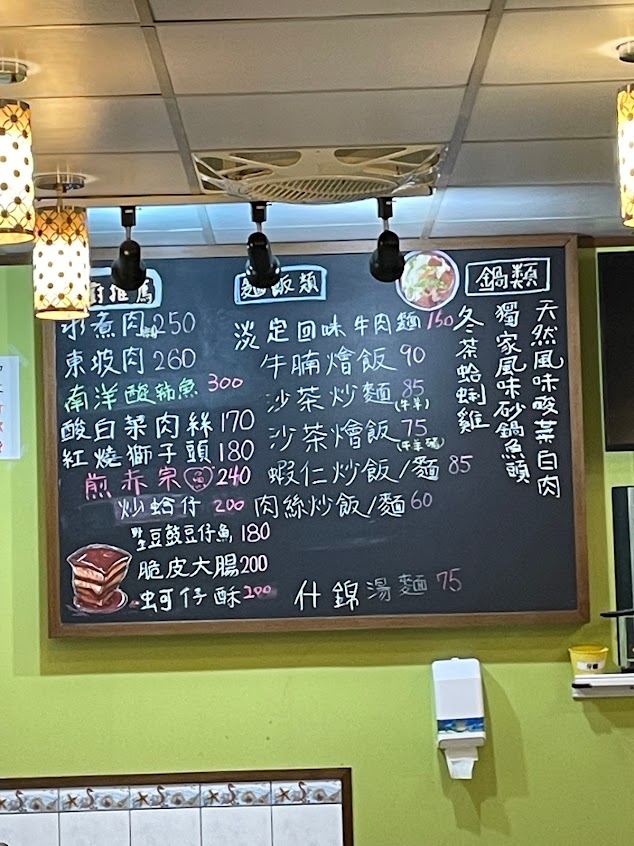 廚推薦
水煮肉 250
東坡肉 260
南洋酸辣魚 300
酸白菜肉絲 170
紅燒獅子頭 180
煎赤宗魚 240
炒蛤仔 200
豆豉豆仔魚 180
脆皮大腸 200
蚵仔酥 200
麵飯類
淡定回味牛肉麵 150
牛腩燴飯 90
沙茶炒麵 85
(牛羊)
沙茶燴飯 75
(牛羊豬)
蝦仁炒飯/麵 85
肉絲炒飯/麵 60
什錦湯麵 75
鍋類
天然風味酸菜白肉
獨家風味砂鍋魚頭
冬茶蛤蜊雞